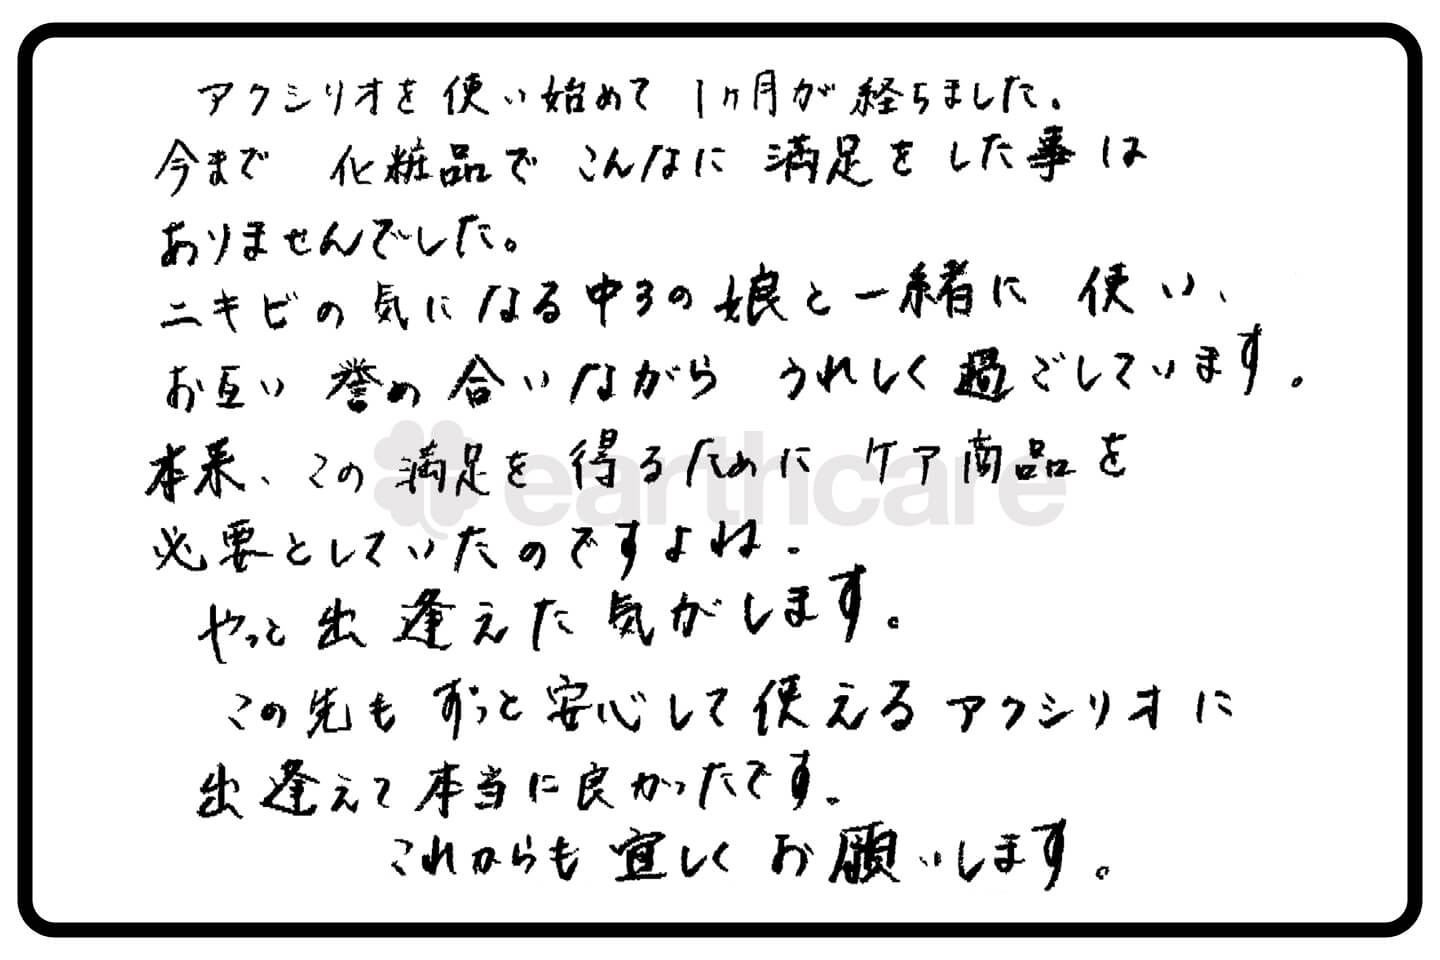 アクシリオを使い始めて 1ヶ月が経ちました。
今まで 化粧品で こんなに 満足をした事は
ありませんでした。
ニキビの気になる中3の娘と一緒に 使い、
お互い 誉め合いながら うれしく過ごしています。
本来、この満足を得るために ケア商品を
必要としていたのですよね。
やっと出逢えた気がします。
この先も ずっと安心して使えるアクシリオに
出逢えて本当に良かったです。
これからも宜しくお願いします。
earthcare